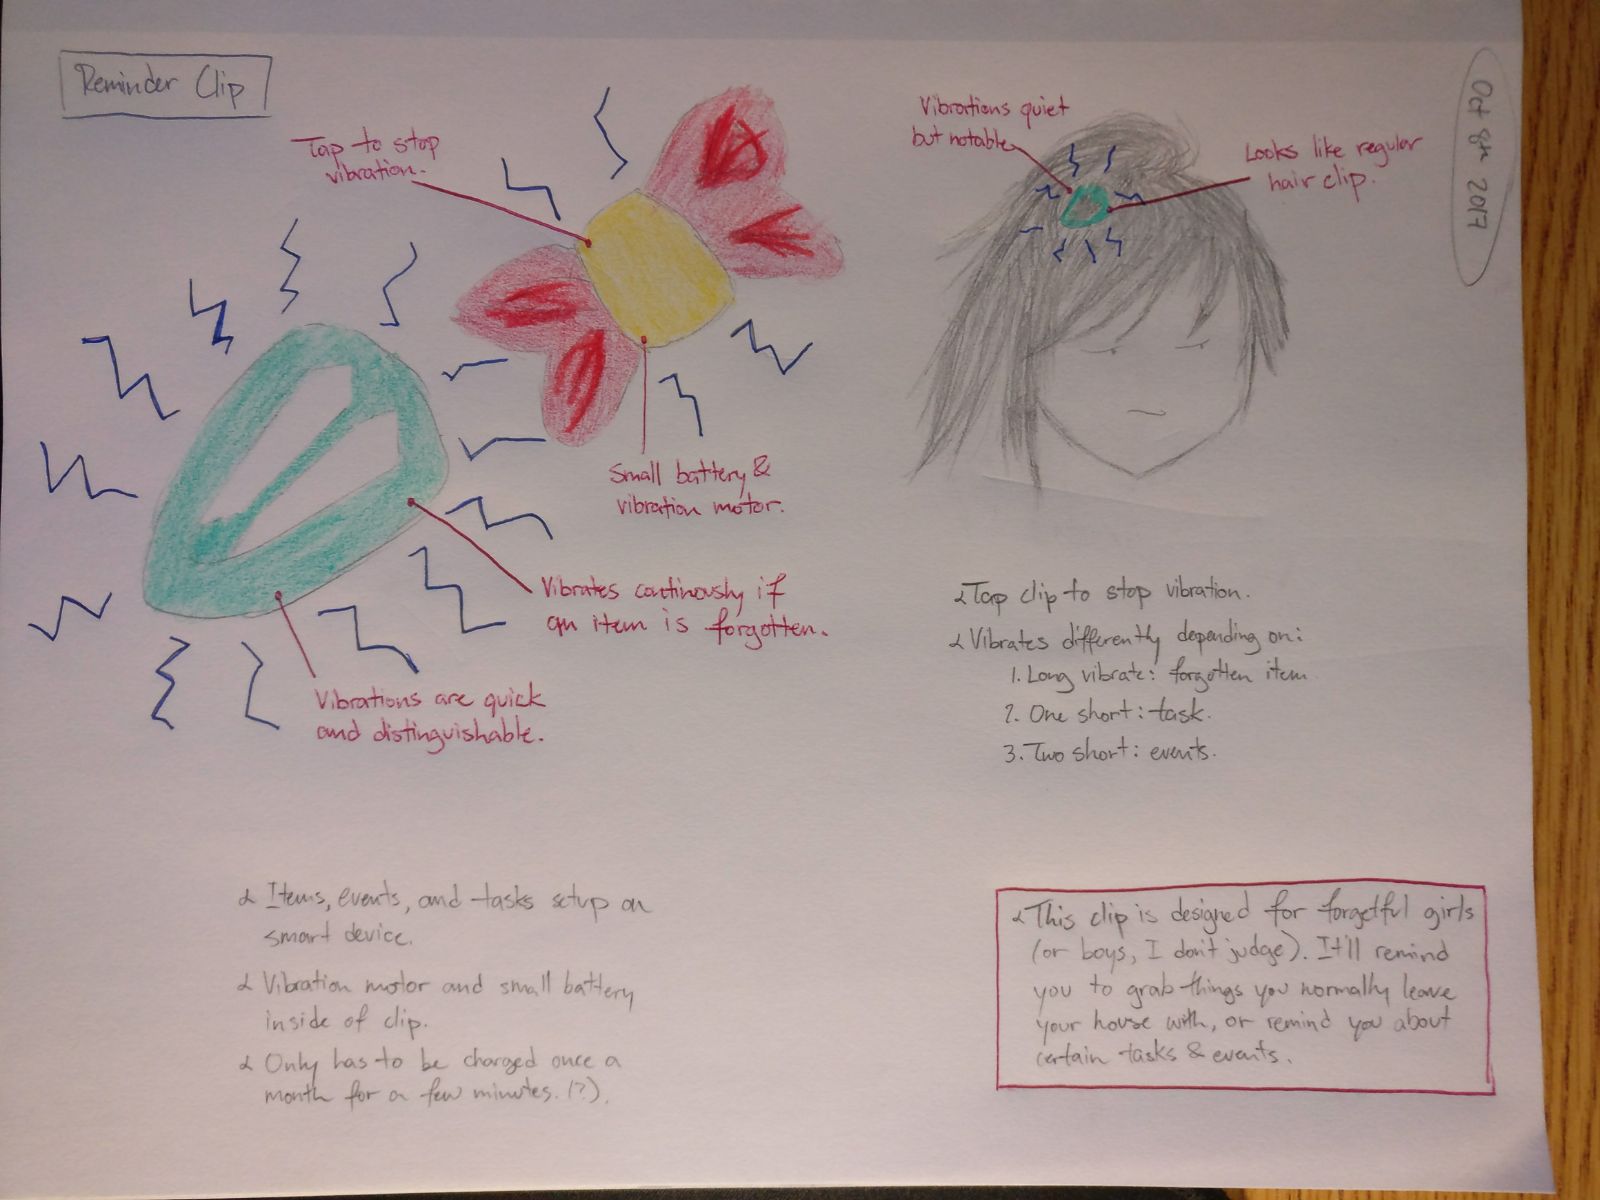 Reminder Clip
Oct 8th 2017
Tap to stop
vibration.
Small battery &
vibration motor.
Vibrates continously if
an item is forgotten.
Vibrations are quick
and distinguishable.
Vibrations quiet
but notable
Looks like regular
hair clip.
Tap clip to stop vibration.
Vibrates differently depending on:
1. Long vibrate: forgotten item
2. One short: task.
3. Two short: events.
Items, events, and tasks setup on
smart device.
Vibration motor and small battery
inside of clip.
Only has to be charged once a
month for a few minutes. (?).
This clip is designed for forgetful girls
(or boys, I don't judge). It'll remind
you to grab things you normally leave
your house with, or remind you about
certain tasks & events.